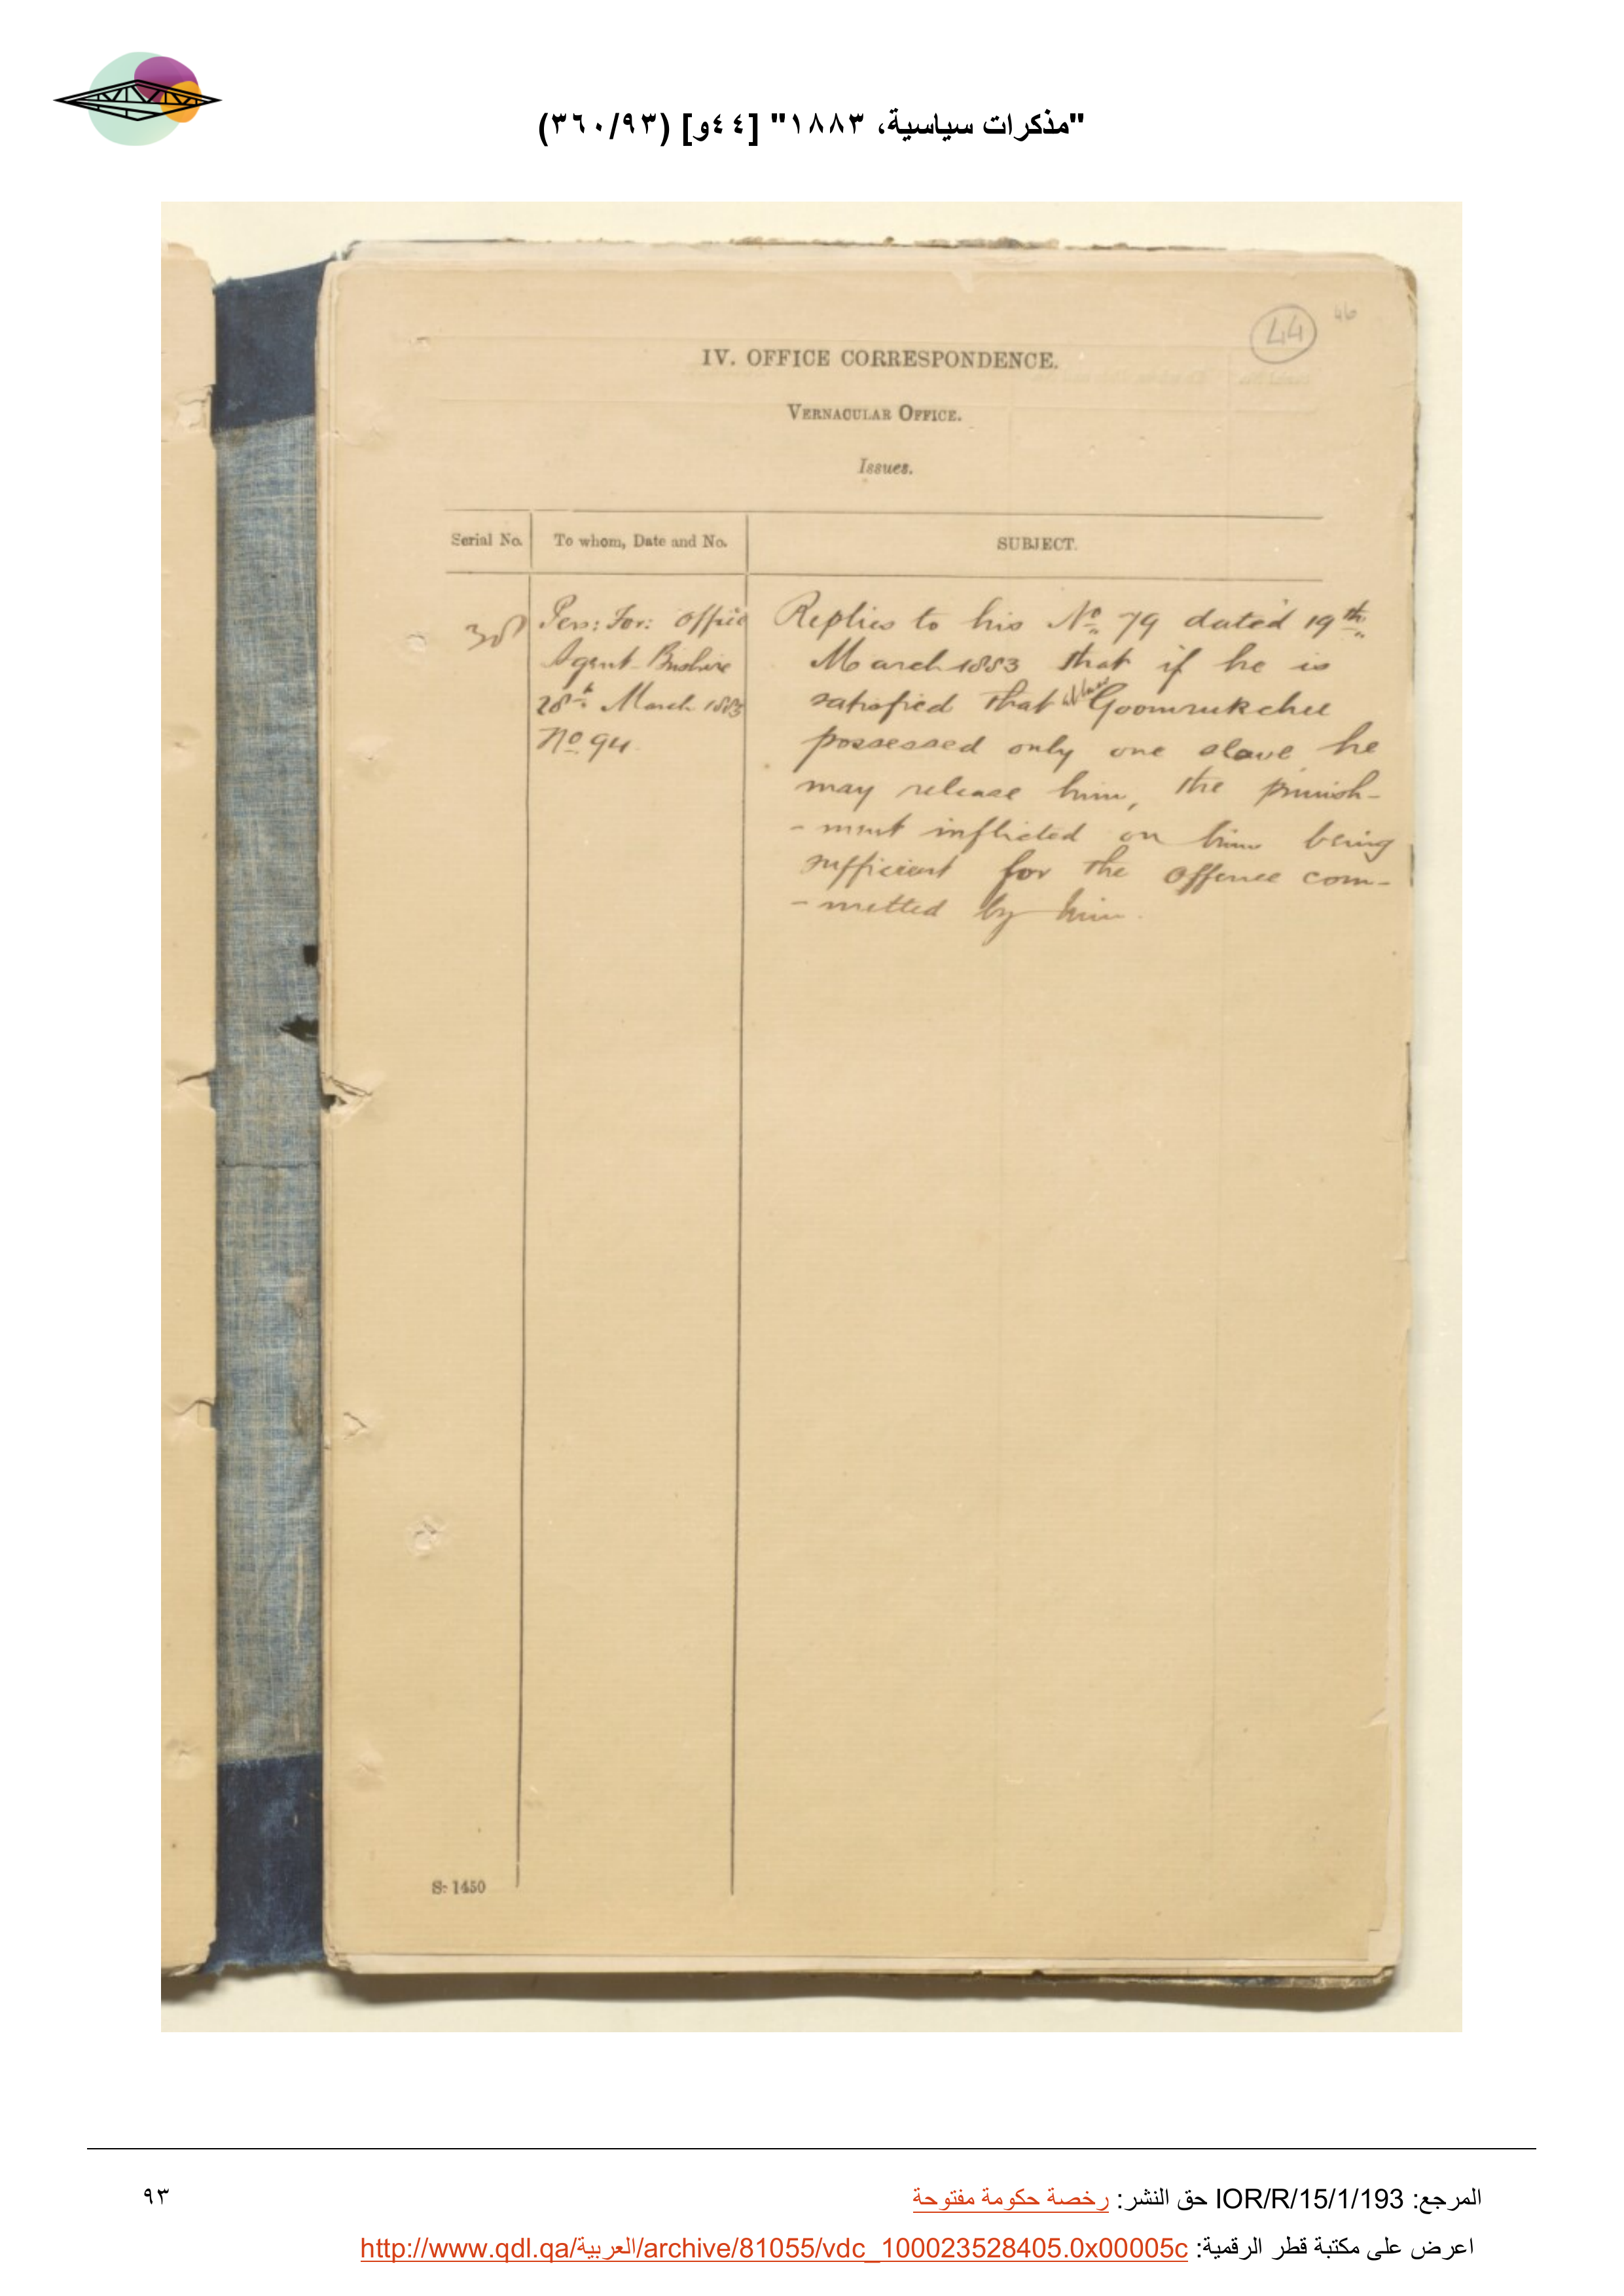 "مذكرات سياسية، ١٨٨٣" [٤٤و] (٣٦٠/٩٣)
44
46
IV. OFFICE CORRESPONDENCE.
VERNACULAR OFFICE.
Issues.
Serial No. To whom, Date and No. SUBJECT.
Pers: For: Office Replies to his No 79 dated 19th
Agent Bushire March 1883 that if he is
28th March 1883 satisfied that Goomrukchee
No 94 possessed only one slave he
may release him, the punish-
-ment inflicted on him being
sufficient for the offence com-
-mitted by him.
S: 1450
المرجع: IOR/R/15/1/193 حق النشر: رخصة حكومة مفتوحة
٩٣
اعرض على مكتبة قطر الرقمية: http://www.qdl.qa/العربية/archive/81055/vdc_100023528405.0x00005c